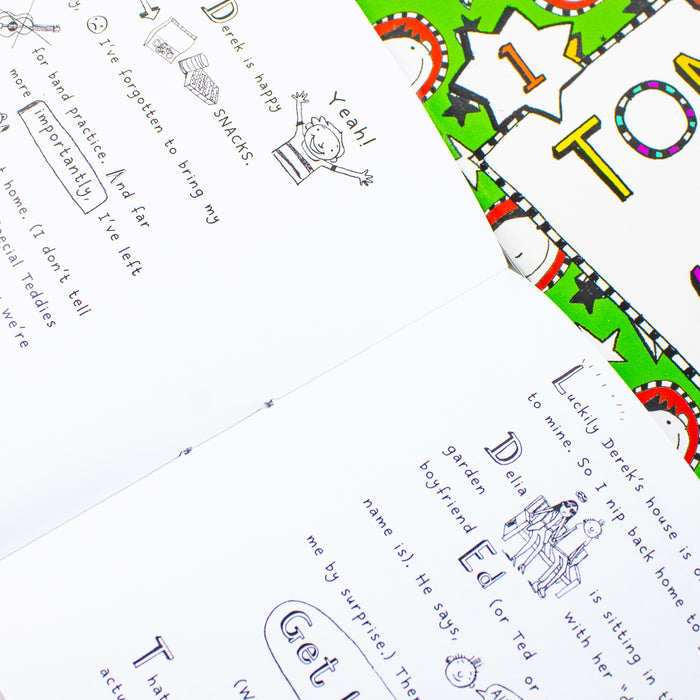 Derek is happy
Yeah!
SNACKS.
I've forgotten to bring my
for band practice. And far
more importantly, I've left
home. (I don't tell
Teddies
we're
Luckily Derek's house is
to mine. So I nip back home to
Delia is sitting in
garden with her
boyfriend Ed (or Ted or
name is). He says,
me by surprise.)
Get
That
1
TO